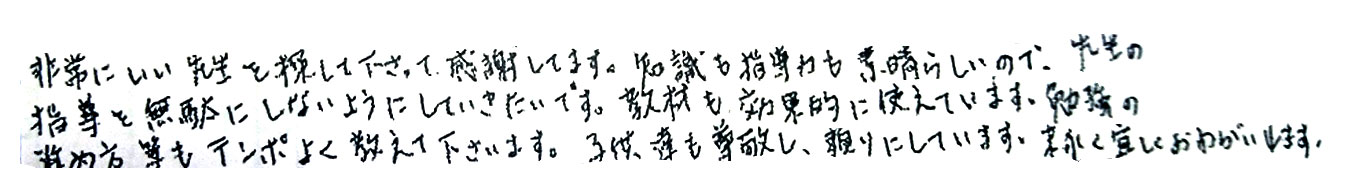 非常にいい先生を探して下さって感謝してます。知識も指導力も素晴らしいので、先生の
指導を無駄にしないようにしていきたいです。教材も効果的に使えています。勉強の
進め方等もテンポよく教えて下さいます。子供達も尊敬し、頼りにしています。末永く宜しくおねがいします。